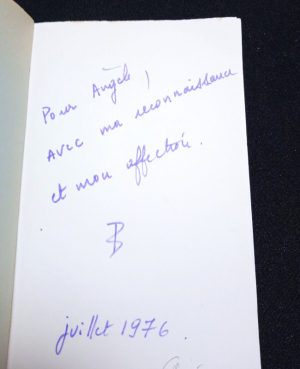 Pour Angèle,
Avec ma reconnaissance
et mon affection.
juillet 1976.